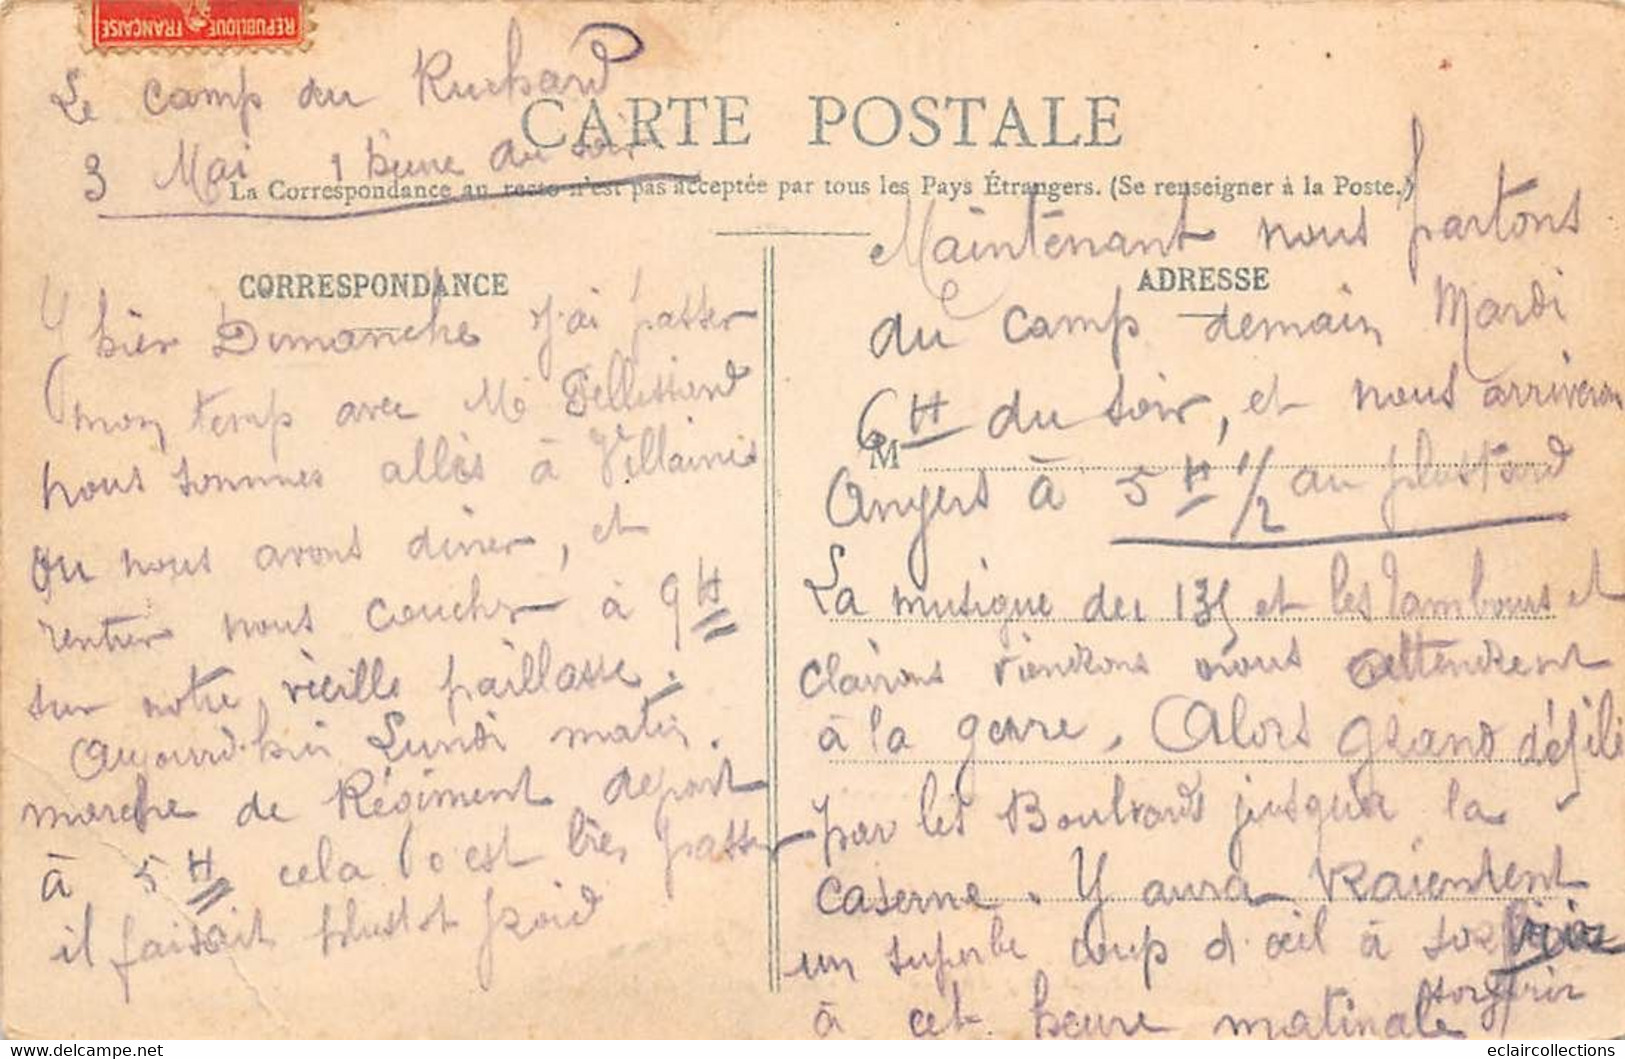 REPUBLIQUE FRANÇAISE
Le Camp du Ruchard
3 Mai 1 heure du soir
CARTE POSTALE
La Correspondance au recto n'est pas acceptée par tous les Pays Étrangers. (Se renseigner à la Poste.)
CORRESPONDANCE
hier Dimanche j'ai passer
mon temp avec Mr Pellissard
nous sommes allés à Villaines
Ou nous avons diner, et
rentrer nous coucher à 9 H
sur notre vieille paillasse.
Aujourd'hui Lundi matin.
marche de Régiment depart
à 5 H cela c'est très passer
il faisait plustot froid
ADRESSE
Maintenant nous partons
du camp demain Mardi
6 H du soir, et nous arriverons
M
Angers à 5 H 1/2 au plustard
La musique du 135 et les tambours et
clairons viendrons nous attendrent
à la gare. Alors grand défilé
par les Boulvards jusqua la
caserne. Y aura vraientent
un superbe coup d'œil à
à cet heure matinale
eclaircollections